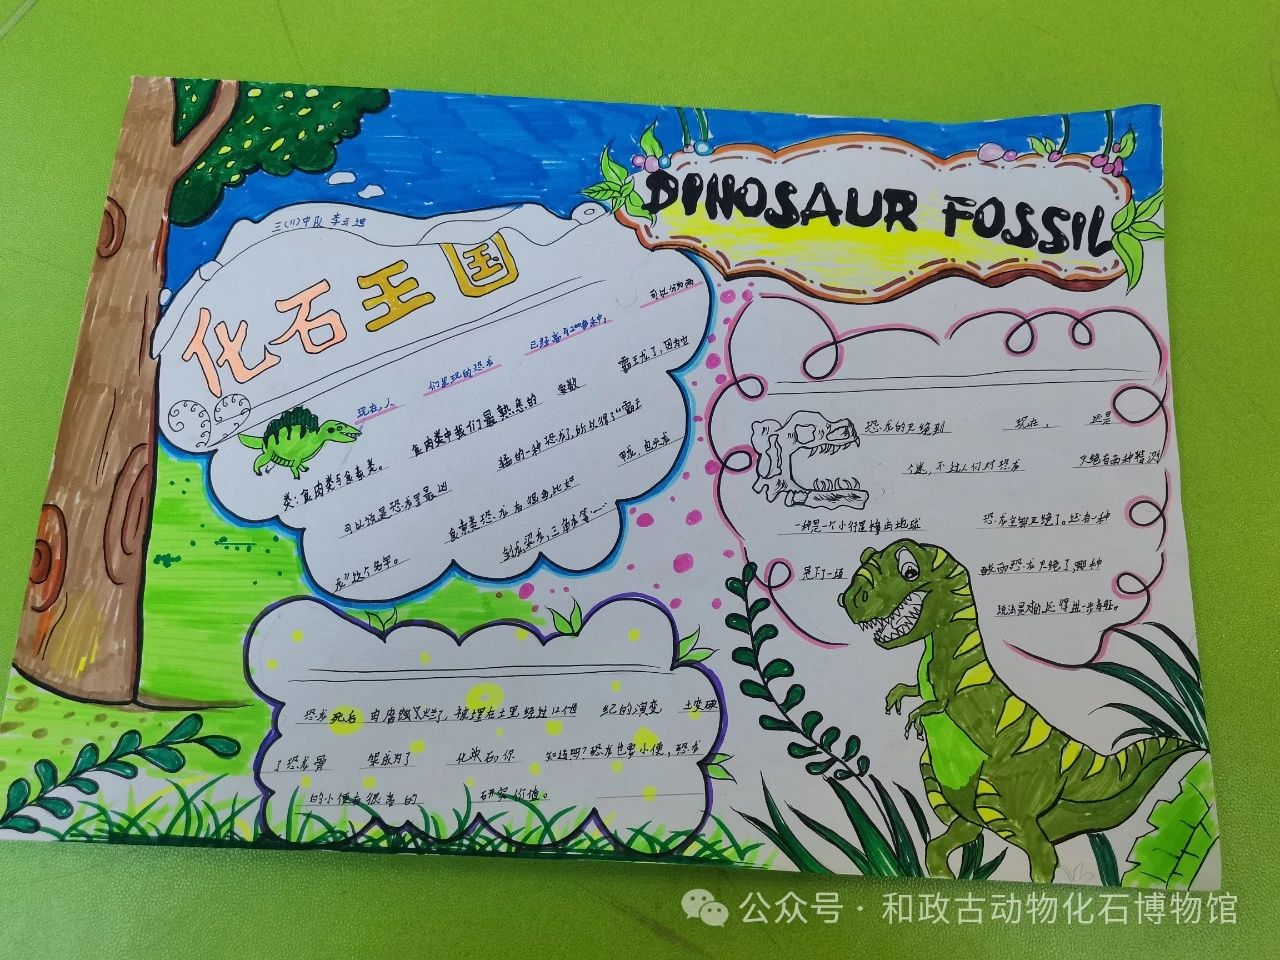 DINOSAUR FOSSIL
化石王国
现在，人们发现的恐龙已经有
可以分为两
类：食肉类与食素类。食肉类中我们最熟悉的要数霸王龙了，因为它
可以说是恐龙里最凶猛的一种恐龙了，所以得了“霸王
龙”这个名字。食素类恐龙有很多比如
剑龙，梁龙，三角龙等……
恐龙死后肉腐蚀又烂了，被埋在土里经过几个世纪的演变
了恐龙骨架成为了化石。你知道吗？恐龙也要小便，恐龙
的小便有很高的研究价值。
恐龙的灭绝到现在，还是
个谜，不过人们对恐龙灭绝有两种猜测
一种是一个小行星撞击地球恐龙全部灭绝了。还有一种
是下了一场酸雨恐龙灭绝了，哪种
说法是对的，还得进一步考证。
公众号·和政古动物化石博物馆